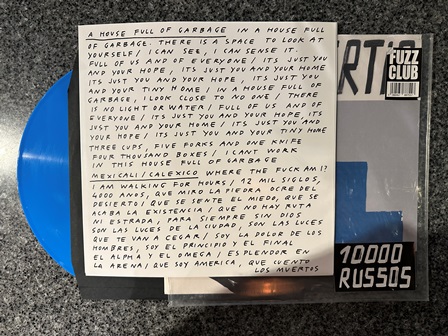 A HOUSE FULL OF GARBAGE IN A HOUSE FULL
OF GARBAGE. THERE IS A SPACE TO LOOK AT
YOURSELF / I CAN SEE, I CAN SENSE IT.
FULL OF US AND OF EVERYONE / ITS JUST YOU
AND YOUR HOPE, ITS JUST YOU AND YOUR HOME
ITS JUST YOU AND YOUR HOPE, ITS JUST YOU
AND YOUR TINY HOME / IN A HOUSE FULL OF
GARBAGE, I LOOK CLOSE TO NO ONE / THERE
IS NO LIGHT OR WATER / FULL OF US AND OF
EVERYONE / ITS JUST YOU AND YOUR HOPE, ITS
JUST YOU AND YOUR HOME / ITS JUST YOU AND
YOUR HOPE / ITS JUST YOU AND YOUR TINY HOME
THREE CUPS, FIVE FORKS AND ONE KNIFE
FOUR THOUSAND BOXES / I CANT WORK
IN THIS HOUSE FULL OF GARBAGE
MEXICALI / CALEXICO WHERE THE FUCK AM I?
I AM WALKING FOR HOURS / 12 MIL SIGLOS,
4000 AÑOS, QUE MIRO LA PIEDRA OCRE DEL
DESIERTO / QUE SE SENTE EL MIEDO, QUE SE
ACABA LA EXISTENCIA / QUE NO HAY RUTA
NI ESTRADA, PARA SIEMPRE SIN DIOS
SON LAS LUCES DE LA CIUDAD, SON LAS LUCES
QUE TE VAN A CEGAR / SOY LA DOLOR DE LOS
HOMBRES, SOY EL PRINCIPIO Y EL FINAL
EL ALPHA Y EL OMEGA / ESPLENDOR EN
LA ARENA / QUE SOY AMERICA, QUE CUENTO
LOS MUERTOS
FUZZ
CLUB
10000
RUSSOS